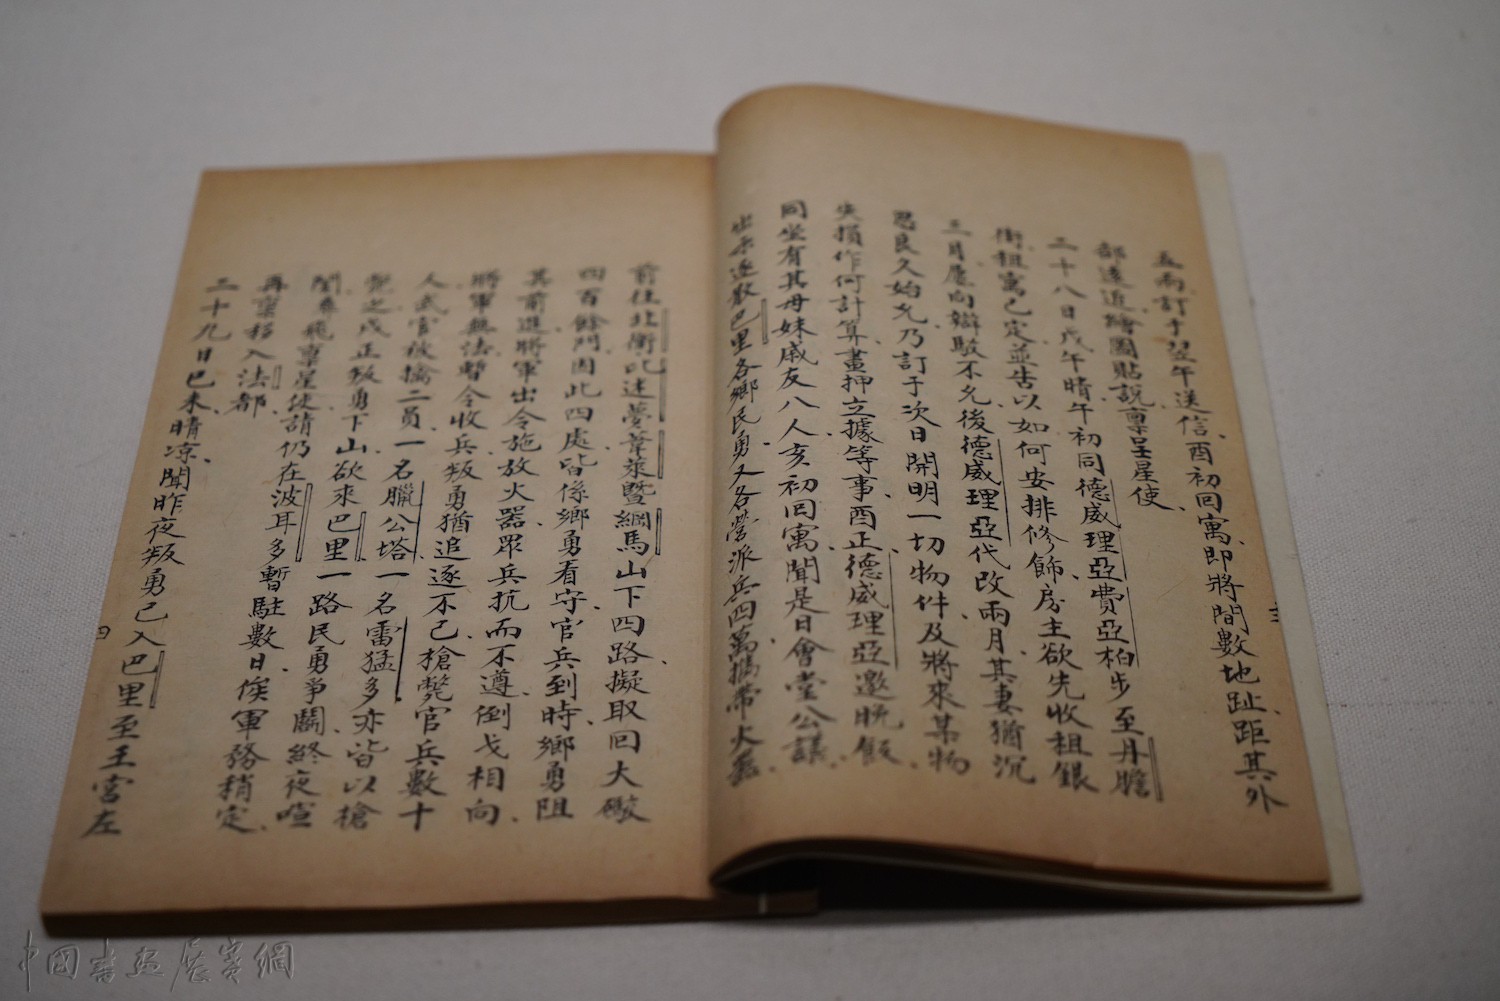 五兩訂于翌午送信酉初回寓即將間數地趾距其外
部遠近繪圖貼說稟呈星使
二十八日戊午晴午初同德威理亞費亞柏步至丹膽
街租寓已定並告以如何安排修飾房主欲先收租銀
三月屢向辯駁不允後德威理亞代改兩月其妻猶沉
思良久始允乃訂于次日開明一切物件及將來某物
失損作何計算畫押立據等事酉正德威理亞邀晚飯
同坐有其母妹戚友八人亥初回寓聞是日會堂公議
出示逐散巴里各鄉民勇又各營派兵四萬攜帶火器
前往北衢比述夢葦萊暨綢馬山下四路擬取回大礮
四百餘門因此四處皆係鄉勇看守官兵到時鄉勇阻
其前進將軍出令施放火器眾兵抗而不遵倒戈相向
將軍無法暫令收兵叛勇猶追逐不已槍斃官兵數十
人武官被擒二員一名臘公塔一名雷猛多亦皆以槍
斃之戌正叛勇下山欲來巴里一路民勇爭鬭終夜喧
鬧奉飛稟星使請仍在波耳多暫駐數日俟軍務稍定
再稟移入法都
二十九日己未晴涼聞昨夜叛勇已入巴里至王宮左
三
四
中國書畫展賽網